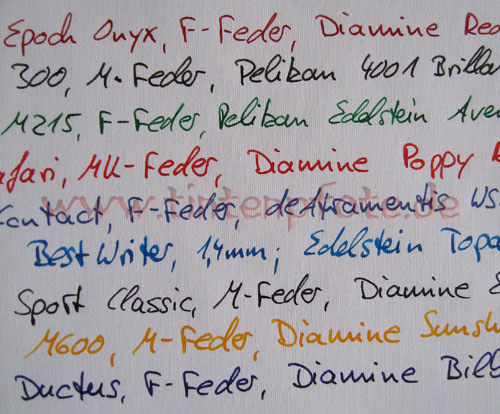 Epoch Onyx, F-Feder, Diamine Red
300, M-Feder, Pelikan 4001 Brillan
M215, F-Feder, Pelikan Edelstein Aven
afari, MK-Feder, Diamine Poppy
www.tintenpfote.de
Contact, F-Feder, deAtramentis
Best Writer, 1,4mm, Edelstein Topa
Sport Classic, M-Feder, Diamine
M600, M-Feder, Diamine Sunsh
Ductus, F-Feder, Diamine Bilb